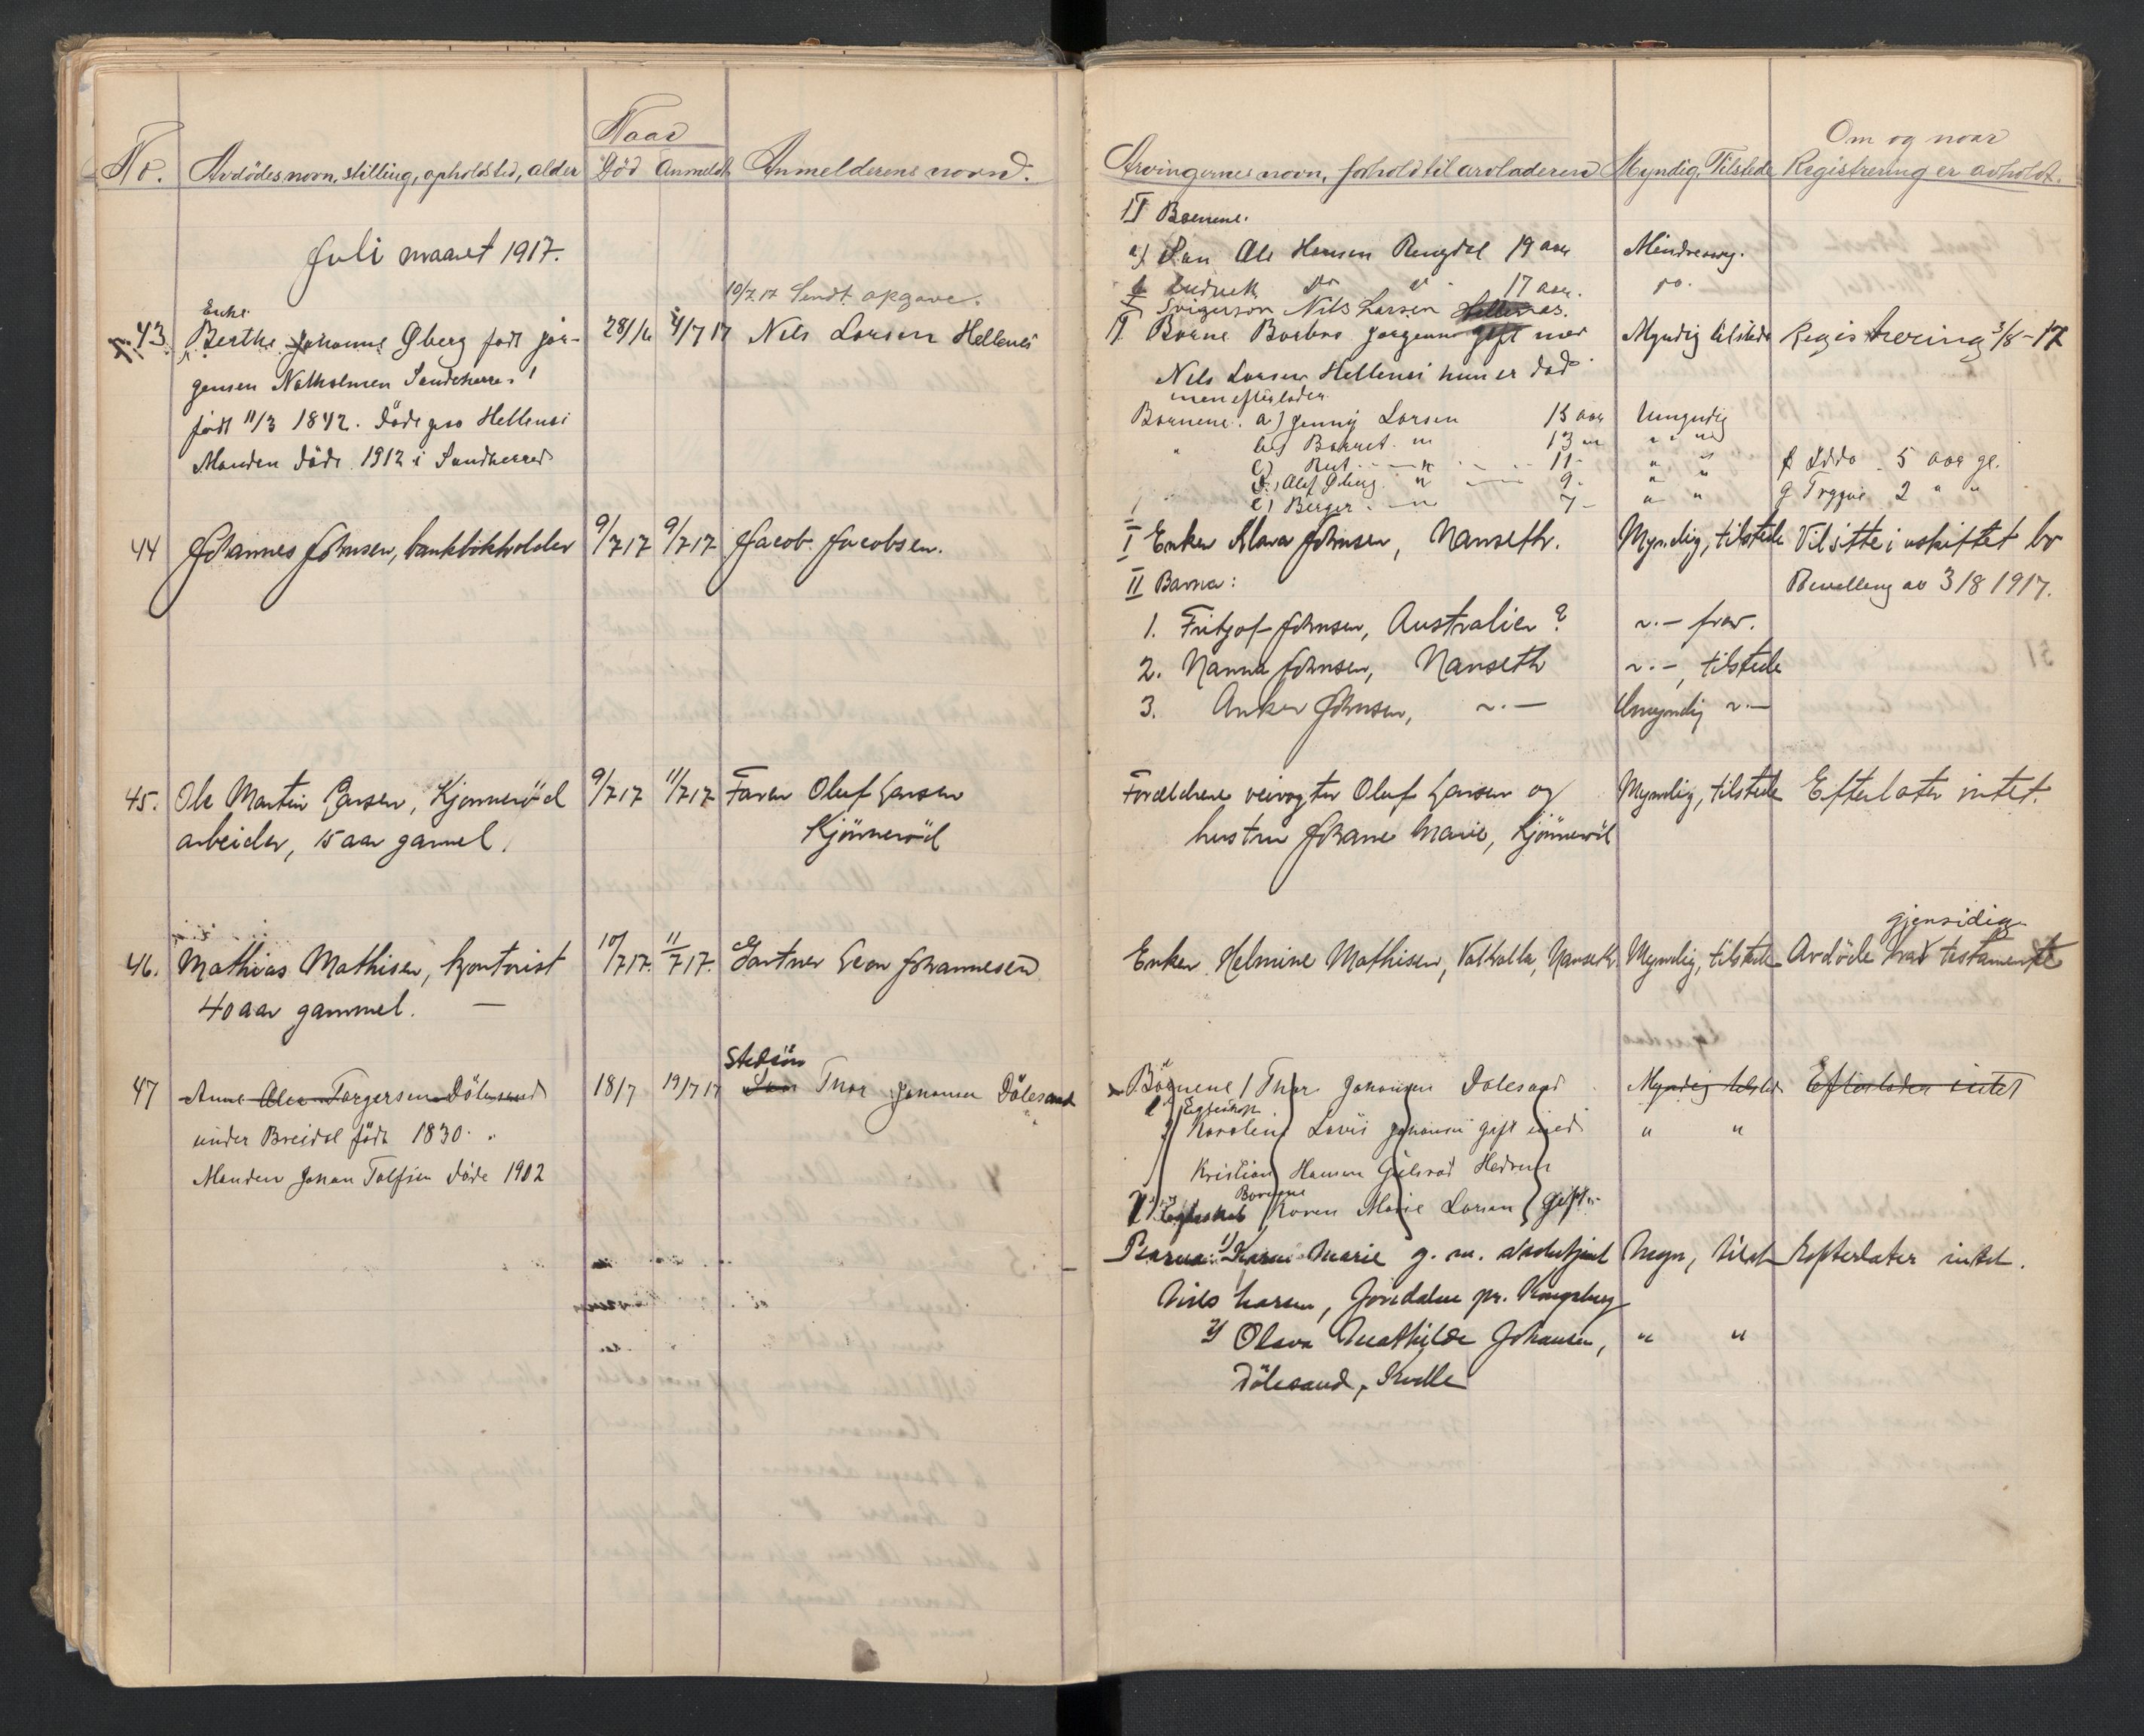 Naar
No. Avdödes navn, stilling, opholdsted, alder Död Anmeldt Anmelderens navn.
Juli maanet 1917.
10/7 17 Sendt opgave.
Enke
43 Berthe Johanne Øberg født Jör- 28/6 4/7 17 Nils Larsen Hellenes
gensen Natholmen Sandeherre
født 11/3 1842. Døde paa Hellenes
Manden døde 1912 i Sandherred
44 Johannes Johnsen, bankbokholder 9/7 17 9/7 17 Jacob Jacobsen.
45. Ole Martin Hansen, Kjønnerød 9/7 17 11/7 17 Faren Oluf Hansen
arbeider, 15 aar gammel. Kjönneröd
46. Mathias Mathisen, kontorist 10/7 17. 11/7 17. Gartner Leon Johannesen
40 aar gammel. —
Stedsön
47 Anne Torgersen Dölesand 18/7 19/7 17 Søn Thor Johansen Dölesand
under Breidal född 1830.
Manden Johan Tolfsen döde 1902
Om og naar
Arvingernes navn, forhold til arvladeren Myndig, Tilstede Registrering er avholdt.
II Barnene.
a) Søn Ole Hansen Rengdal 19 aar Mindreaarg.
b Do 17 aar. Do.
I Svigersøn Nils Larsen
II Barne Barbro Jørgenne gift med Myndig tilstede Registrering 3/8-17
Nils Larsen Hellenes hun er død
men efterlader
Barnene: a) Jenny Larsen 15 aar Umyndig
b) 13 "
c) Rut " 11 - " " f Edda 5 aar gl.
d) Olaf Øberg " 9 - " " g Trygve 2 " "
e) Berger " 7 - " "
I Enken Klara Johnsen, Nanseth. Myndig, tilstede Vil sitte i uskiftet bo
II Barna: Bevilling av 3/8 1917.
1. Fritjof Johnsen, Australien? ~.— frav.
2. Nanna Johnsen, Nanseth ~.—, tilstede
3. Anker Johnsen, ~.— Umyndig ~.—
Forældrene veivogter Oluf Hansen og Myndig, tilstede Efterlater intet.
hustru Johane Marie, Kjönneröd
gjensidig
Enken Helmine Mathisen, Valhalla, Nanseth Myndig, tilstede Avdöde testamente
Börnene 1/ Thor Johansen Dolesand Myndig tilsted Efterlader intet
Egteskap
Karoline Lovis Johansen gift med " "
Kristian Hansen Hedrum
Barnene
Egteskab Karen Marie Larsen gift
Barna: 1) Karen Marie g. m. Myn, tilst Efterlater intet.
Nils Larsen, Jondalen pr. Kongsberg
2) Olava Mathilde Johansen, " "
Dölesand, Kvelle